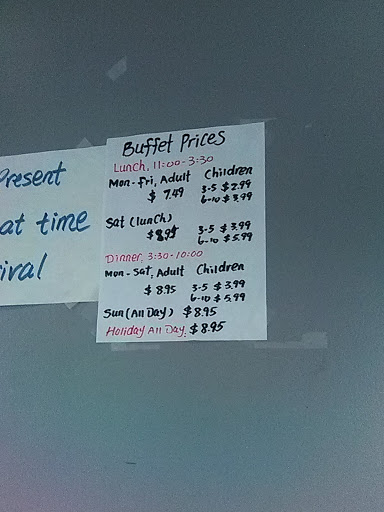 Present
at time
ival
Buffet Prices
Lunch, 11:00-3:30
Mon-Fri, Adult Children
$ 7.49 3-5 $2.99
6-10 $3.99
Sat (lunch)
$8.95 3-5 $3.99
6-10 $5.99
Dinner, 3:30-10:00
Mon-Sat, Adult Children
$8.95 3-5 $3.99
6-10 $5.99
Sun (All Day) $8.95
Holiday All Day, $8.95